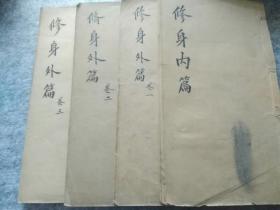 修身內篇
修身外篇 卷一
修身外篇 卷二
修身外篇 卷三